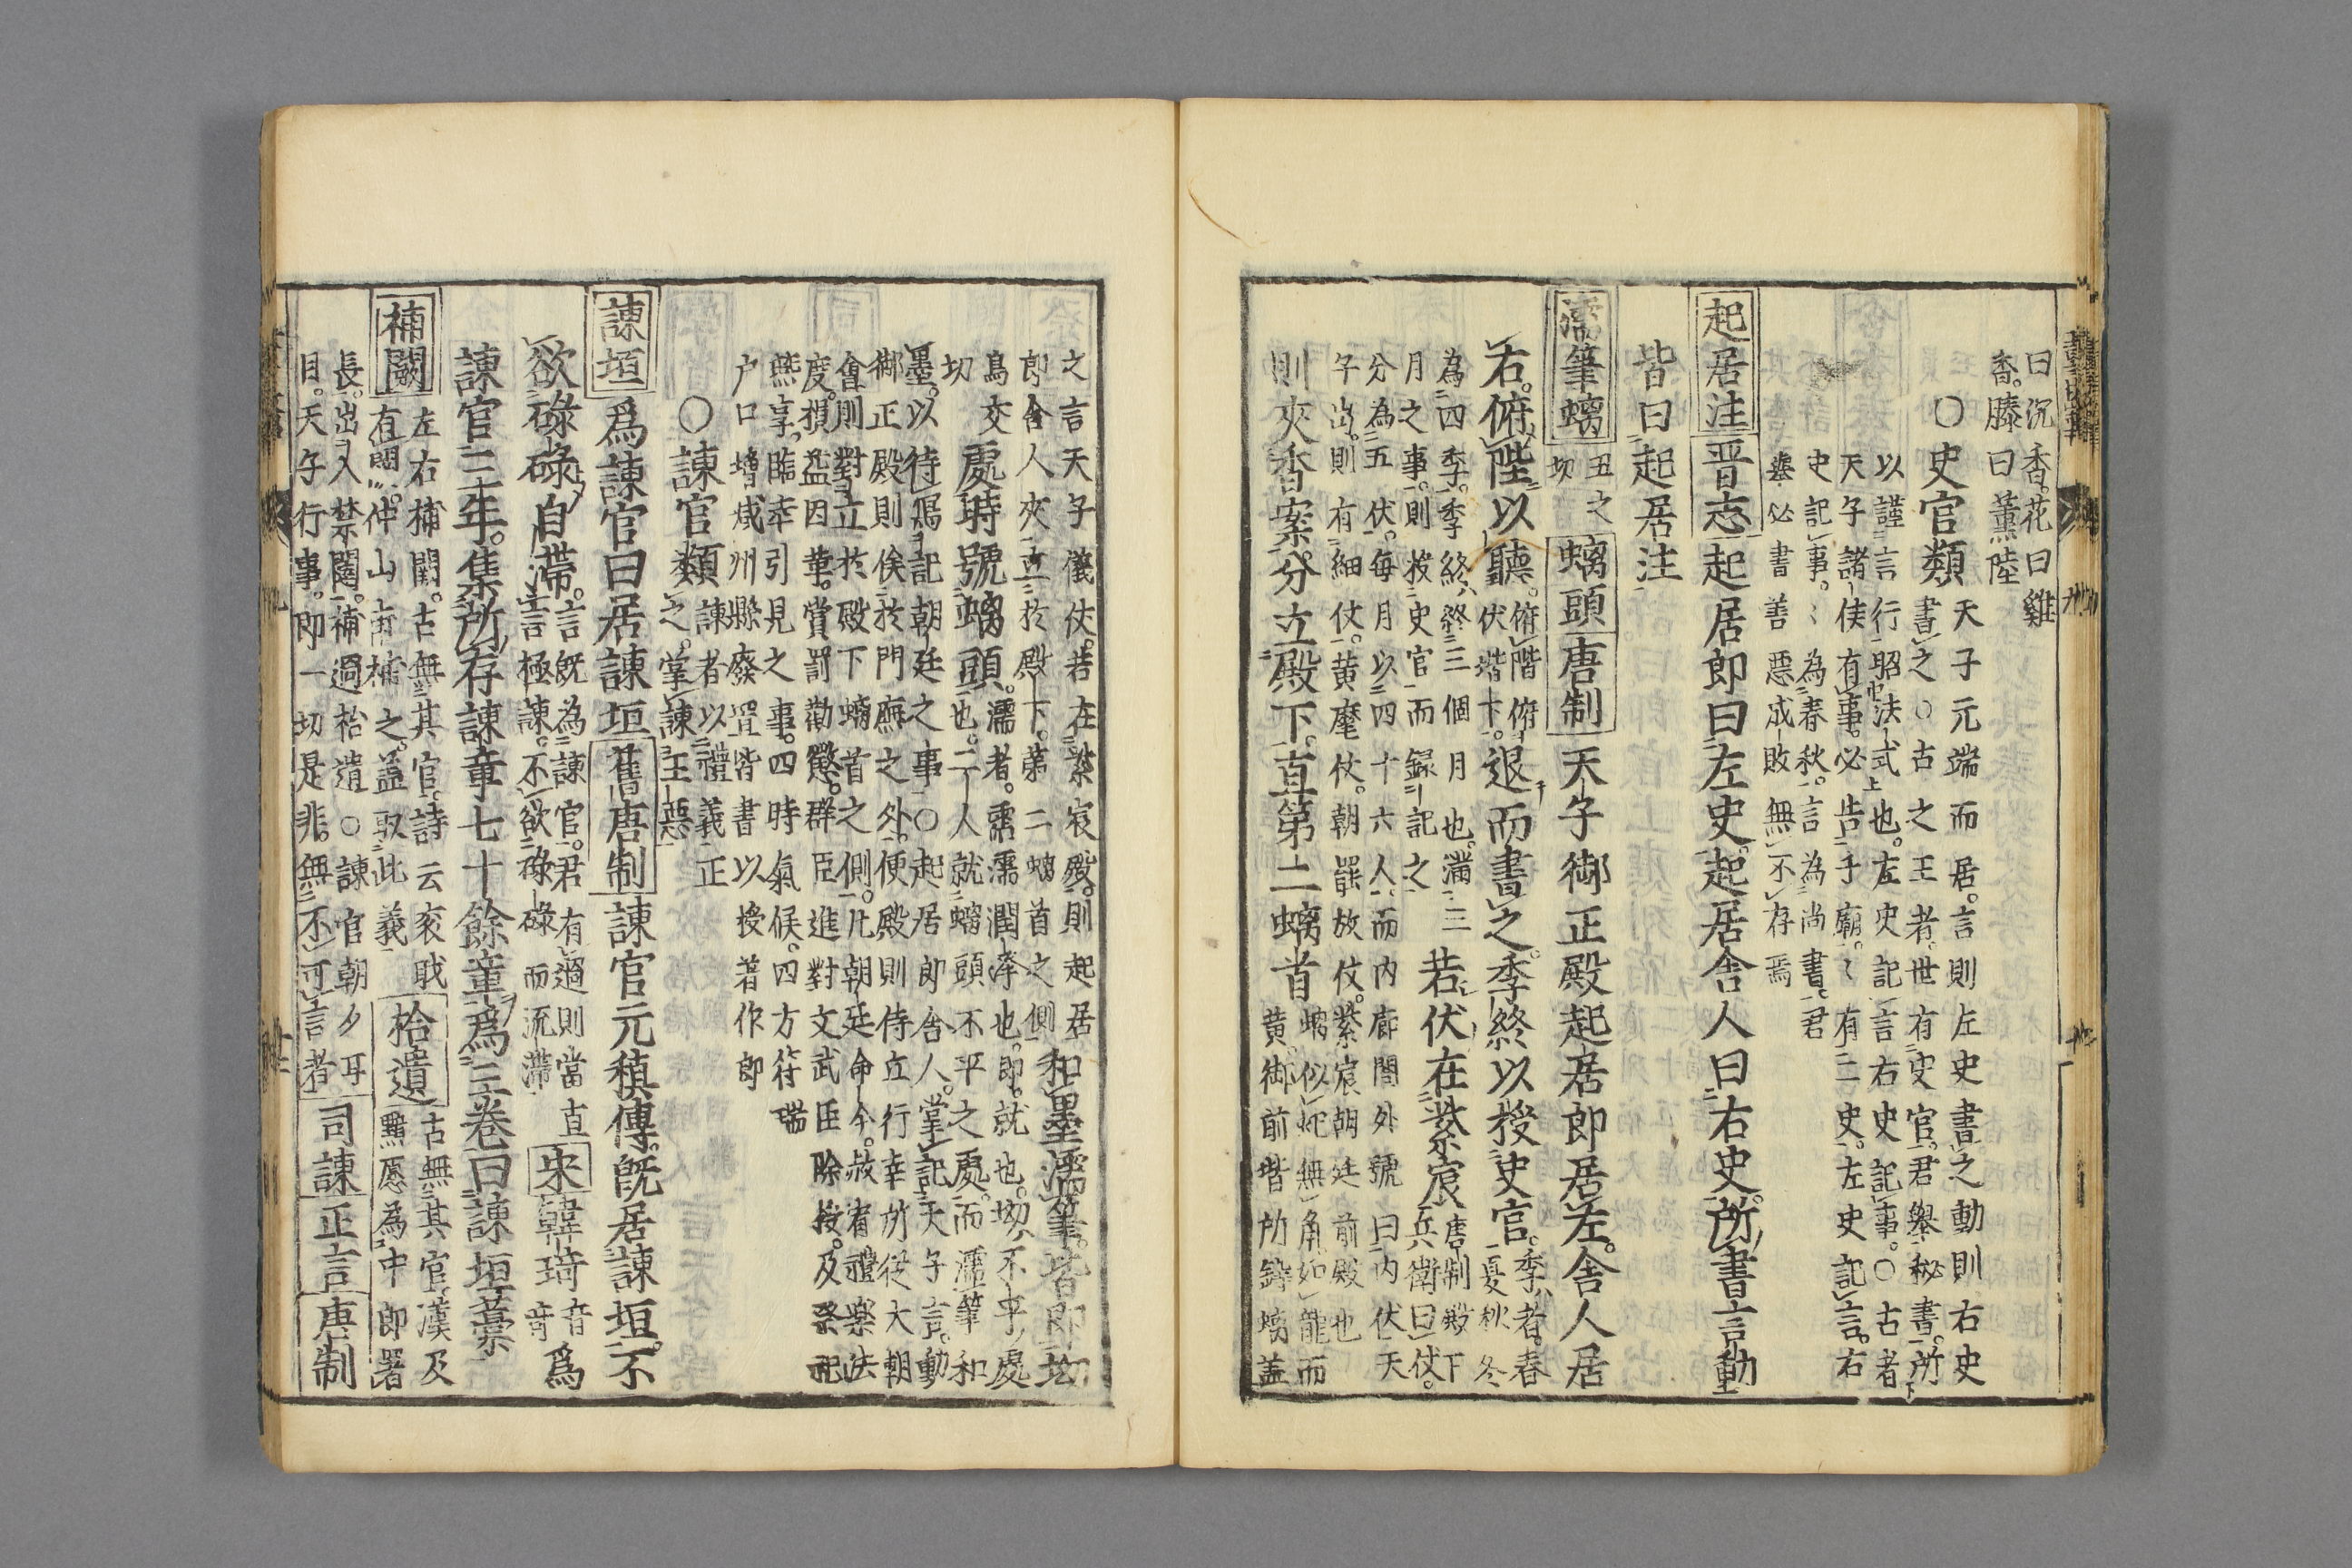 曰沉香花曰雞
香滕曰薫陸
○史官類
天子元端而居言則左史書之動則右史
書之○古之王者世有史官君舉秘書所
以謹言行昭法式也左史記言右史記事○古者
天子諸侯有事必告于廟〻有二史左史記言右
史記事〻為春秋言為尚書君
舉必書善惡成敗無不存焉
起居注 晋志 起居郎曰左史起居舍人曰右史所書言動
皆曰起居注
濡筆螭
丑之
切
螭頭 唐制 天子御正殿起居郎居左舍人居
右俯陛以聽
俯階俯
伏堦下
退而書之季終以授史官
季者春
夏秋冬
為四季季終終三個月也滿三
月之事則授史官而録記之
若伏在紫宸
唐制殿下
兵衛曰仗
分為五伏每月以四十六人而内廊閤外號曰内伏天
子出則有細仗黄麾仗朝罷放仗紫宸朝廷前殿也
則夾香案分立殿下直第二螭首
螭似蛇無角如龍而
黄御前堦所鑄螭盖
之言天子儀仗若在紫宸殿則起居
郎舍人夾立於殿下第二螭首之側
和墨濡筆皆即坳
烏交
切
處時號螭頭
濡者霑濡潤澤也即就也坳不平處
也二人就螭頭不平之處而濡筆和
墨以待鳴記朝廷之事○起居郎舍人掌記天子言動
御正殿則俟於門廡之外便殿則侍立行幸所從大朝
會則對立於殿下螭首之側凡朝廷命令赦宥禮樂法
度損益因革賞罰勸懲群臣進對文武臣除授及祭祀
燕享臨幸引見之事四時氣候四方符瑞
户口增减州縣廢置皆書以授著作郎
○諫官類
諫者以禮義正
之掌諫王惡
諫垣 爲諫官曰居諫垣 舊唐制 諫官元稹傳既居諫垣不
欲碌碌自滞
言既為諫官君有過則當直
言極諫不欲碌碌而流滞
宋 韓琦
音
竒
爲
諫官三年集所存諫章七十餘章爲三卷曰諫垣藁
補闕
左右補闕古無其官詩云衮職
有闕仲山甫補之盖取此義
拾遺
古無其官漢及
黯愿為中郎署
長出入禁闥補過拾遺○諫官朝夕耳
目天子行事即一切是非無不可言者
司諫 正言 唐制